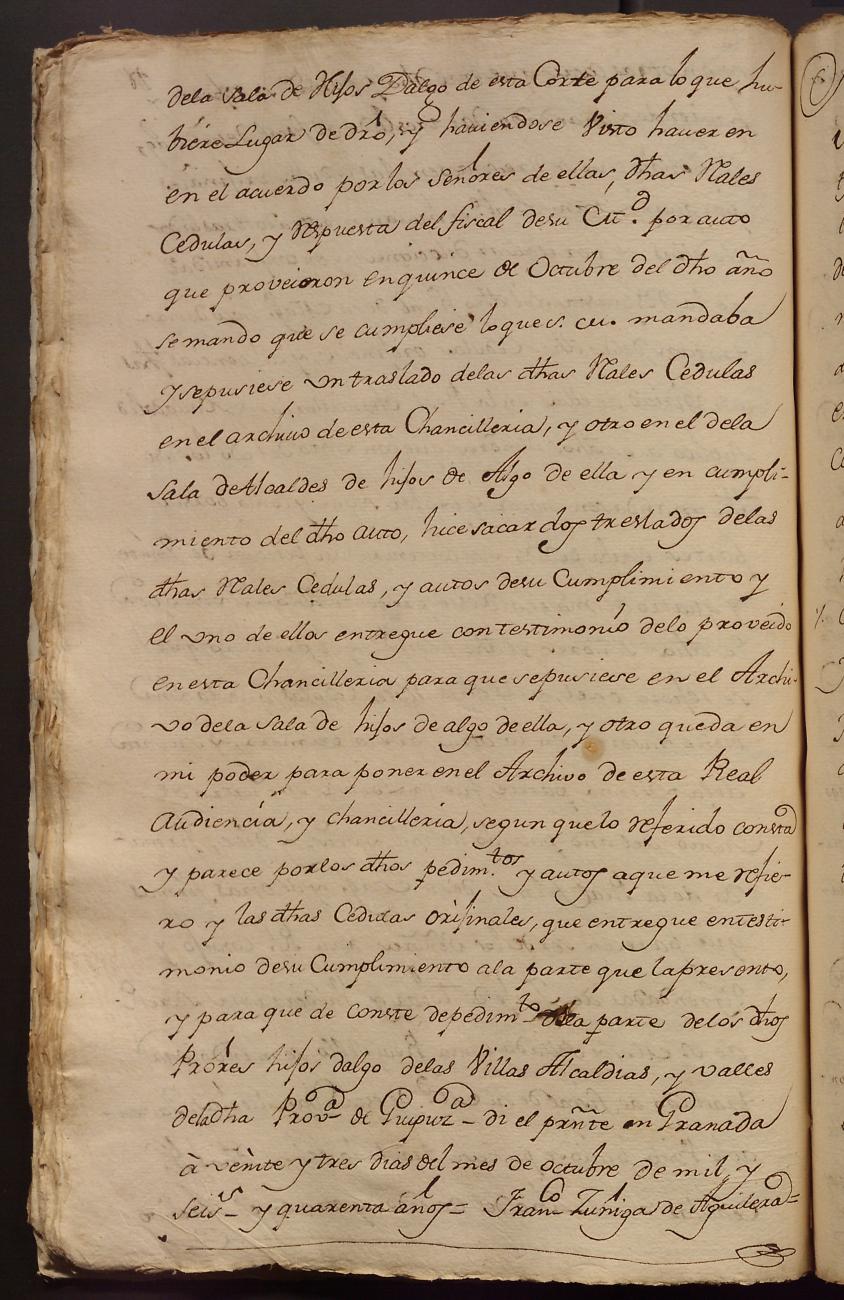 dela Sala de Hijos Dalgo de esta Corte para lo que hu-
biere Lugar de dro, y haviendose Visto haver en
en el acuerdo por los Señores de ellas, dhas Rales
Cedulas, y Respuesta del fiscal de su
por auto
que proveieron en quince de Octubre del dho año
se mando que se cumpliese lo que s. M. mandaba
y se pusiese un traslado delas dhas Rales Cedulas
en el archivo de esta Chancilleria, y otro en el dela
Sala de Alcaldes de hijos de Algo de ella y en cumpli-
miento del dho auto, hice sacar dos treslados delas
dhas Rales Cedulas, y autos de su Cumplimiento y
el uno de ellos entregue con testimonio delo proveido
en esta Chancilleria para que se pusiese en el Archi-
vo dela Sala de hijos de algo de ella, y otro queda en
mi poder para poner en el Archivo de esta Real
Audiencia, y chancilleria, segun que lo referido consta
y parece por los dhos pedim.tos y autos a que me refie-
ro y las dhas Cedulas orijinales, que entregue en testi-
monio de su Cumplimiento ala parte que la presento,
y para que de conste de pedim.to dela parte delos dhos
Prores hijos dalgo delas Villas Alcaldias, y valles
dela dha Prov.a de Guipuz.a di el prñte en Granada
à veinte y tres dias del mes de octubre de mil, y
seis.s y quarenta años = Fran.co Zuñiga de Aguilera =